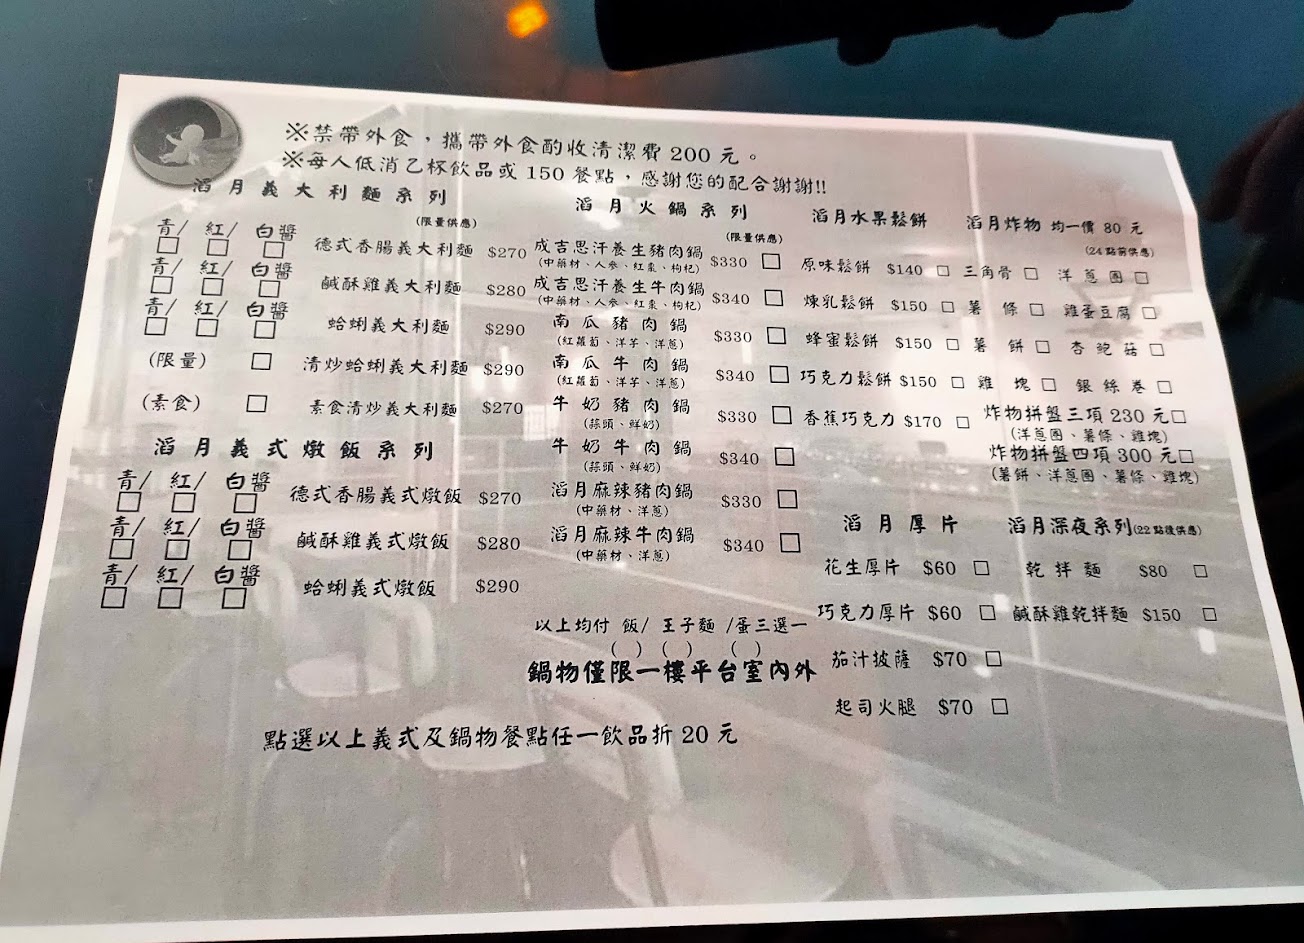 ※禁帶外食，攜帶外食酌收清潔費 200 元。
※每人低消乙杯飲品或 150 餐點，感謝您的配合謝謝!!
滔月義大利麵系列
(限量供應)
青/ 紅/ 白醬 □ □ □ 德式香腸義大利麵 $270
青/ 紅/ 白醬 □ □ □ 鹹酥雞義大利麵 $280
青/ 紅/ 白醬 □ □ □ 蛤蜊義大利麵 $290
(限量) □ 清炒蛤蜊義大利麵 $290
(素食) □ 素食清炒義大利麵 $270
滔月義式燉飯系列
青/ 紅/ 白醬 □ □ □ 德式香腸義式燉飯 $270
青/ 紅/ 白醬 □ □ □ 鹹酥雞義式燉飯 $280
青/ 紅/ 白醬 □ □ □ 蛤蜊義式燉飯 $290
滔月火鍋系列
(限量供應)
成吉思汗養生豬肉鍋 $330 □
(中藥材、人參、紅棗、枸杞)
成吉思汗養生牛肉鍋 $340 □
(中藥材、人參、紅棗、枸杞)
南瓜豬肉鍋 $330 □
(紅蘿蔔、洋芋、洋蔥)
南瓜牛肉鍋 $340 □
(紅蘿蔔、洋芋、洋蔥)
牛奶豬肉鍋 $330 □
(蒜頭、鮮奶)
牛奶牛肉鍋 $340 □
(蒜頭、鮮奶)
滔月麻辣豬肉鍋 $330 □
(中藥材、洋蔥)
滔月麻辣牛肉鍋 $340 □
(中藥材、洋蔥)
以上均付 飯/ 王子麵 /蛋三選一
( ) ( ) ( )
鍋物僅限一樓平台室內外
滔月水果鬆餅
原味鬆餅 $140 □
煉乳鬆餅 $150 □
蜂蜜鬆餅 $150 □
巧克力鬆餅 $150 □
香蕉巧克力 $170 □
滔月炸物 均一價 80 元
(24 點前供應)
三角骨 □ 洋蔥圈 □
薯條 □ 雞蛋豆腐 □
薯餅 □ 杏鮑菇 □
雞塊 □ 銀絲卷 □
炸物拼盤三項 230 元□
(洋蔥圈、薯條、雞塊)
炸物拼盤四項 300 元□
(薯餅、洋蔥圈、薯條、雞塊)
滔月厚片
花生厚片 $60 □
巧克力厚片 $60 □
茄汁披薩 $70 □
起司火腿 $70 □
滔月深夜系列(22 點後供應)
乾拌麵 $80 □
鹹酥雞乾拌麵 $150 □
點選以上義式及鍋物餐點任一飲品折 20 元